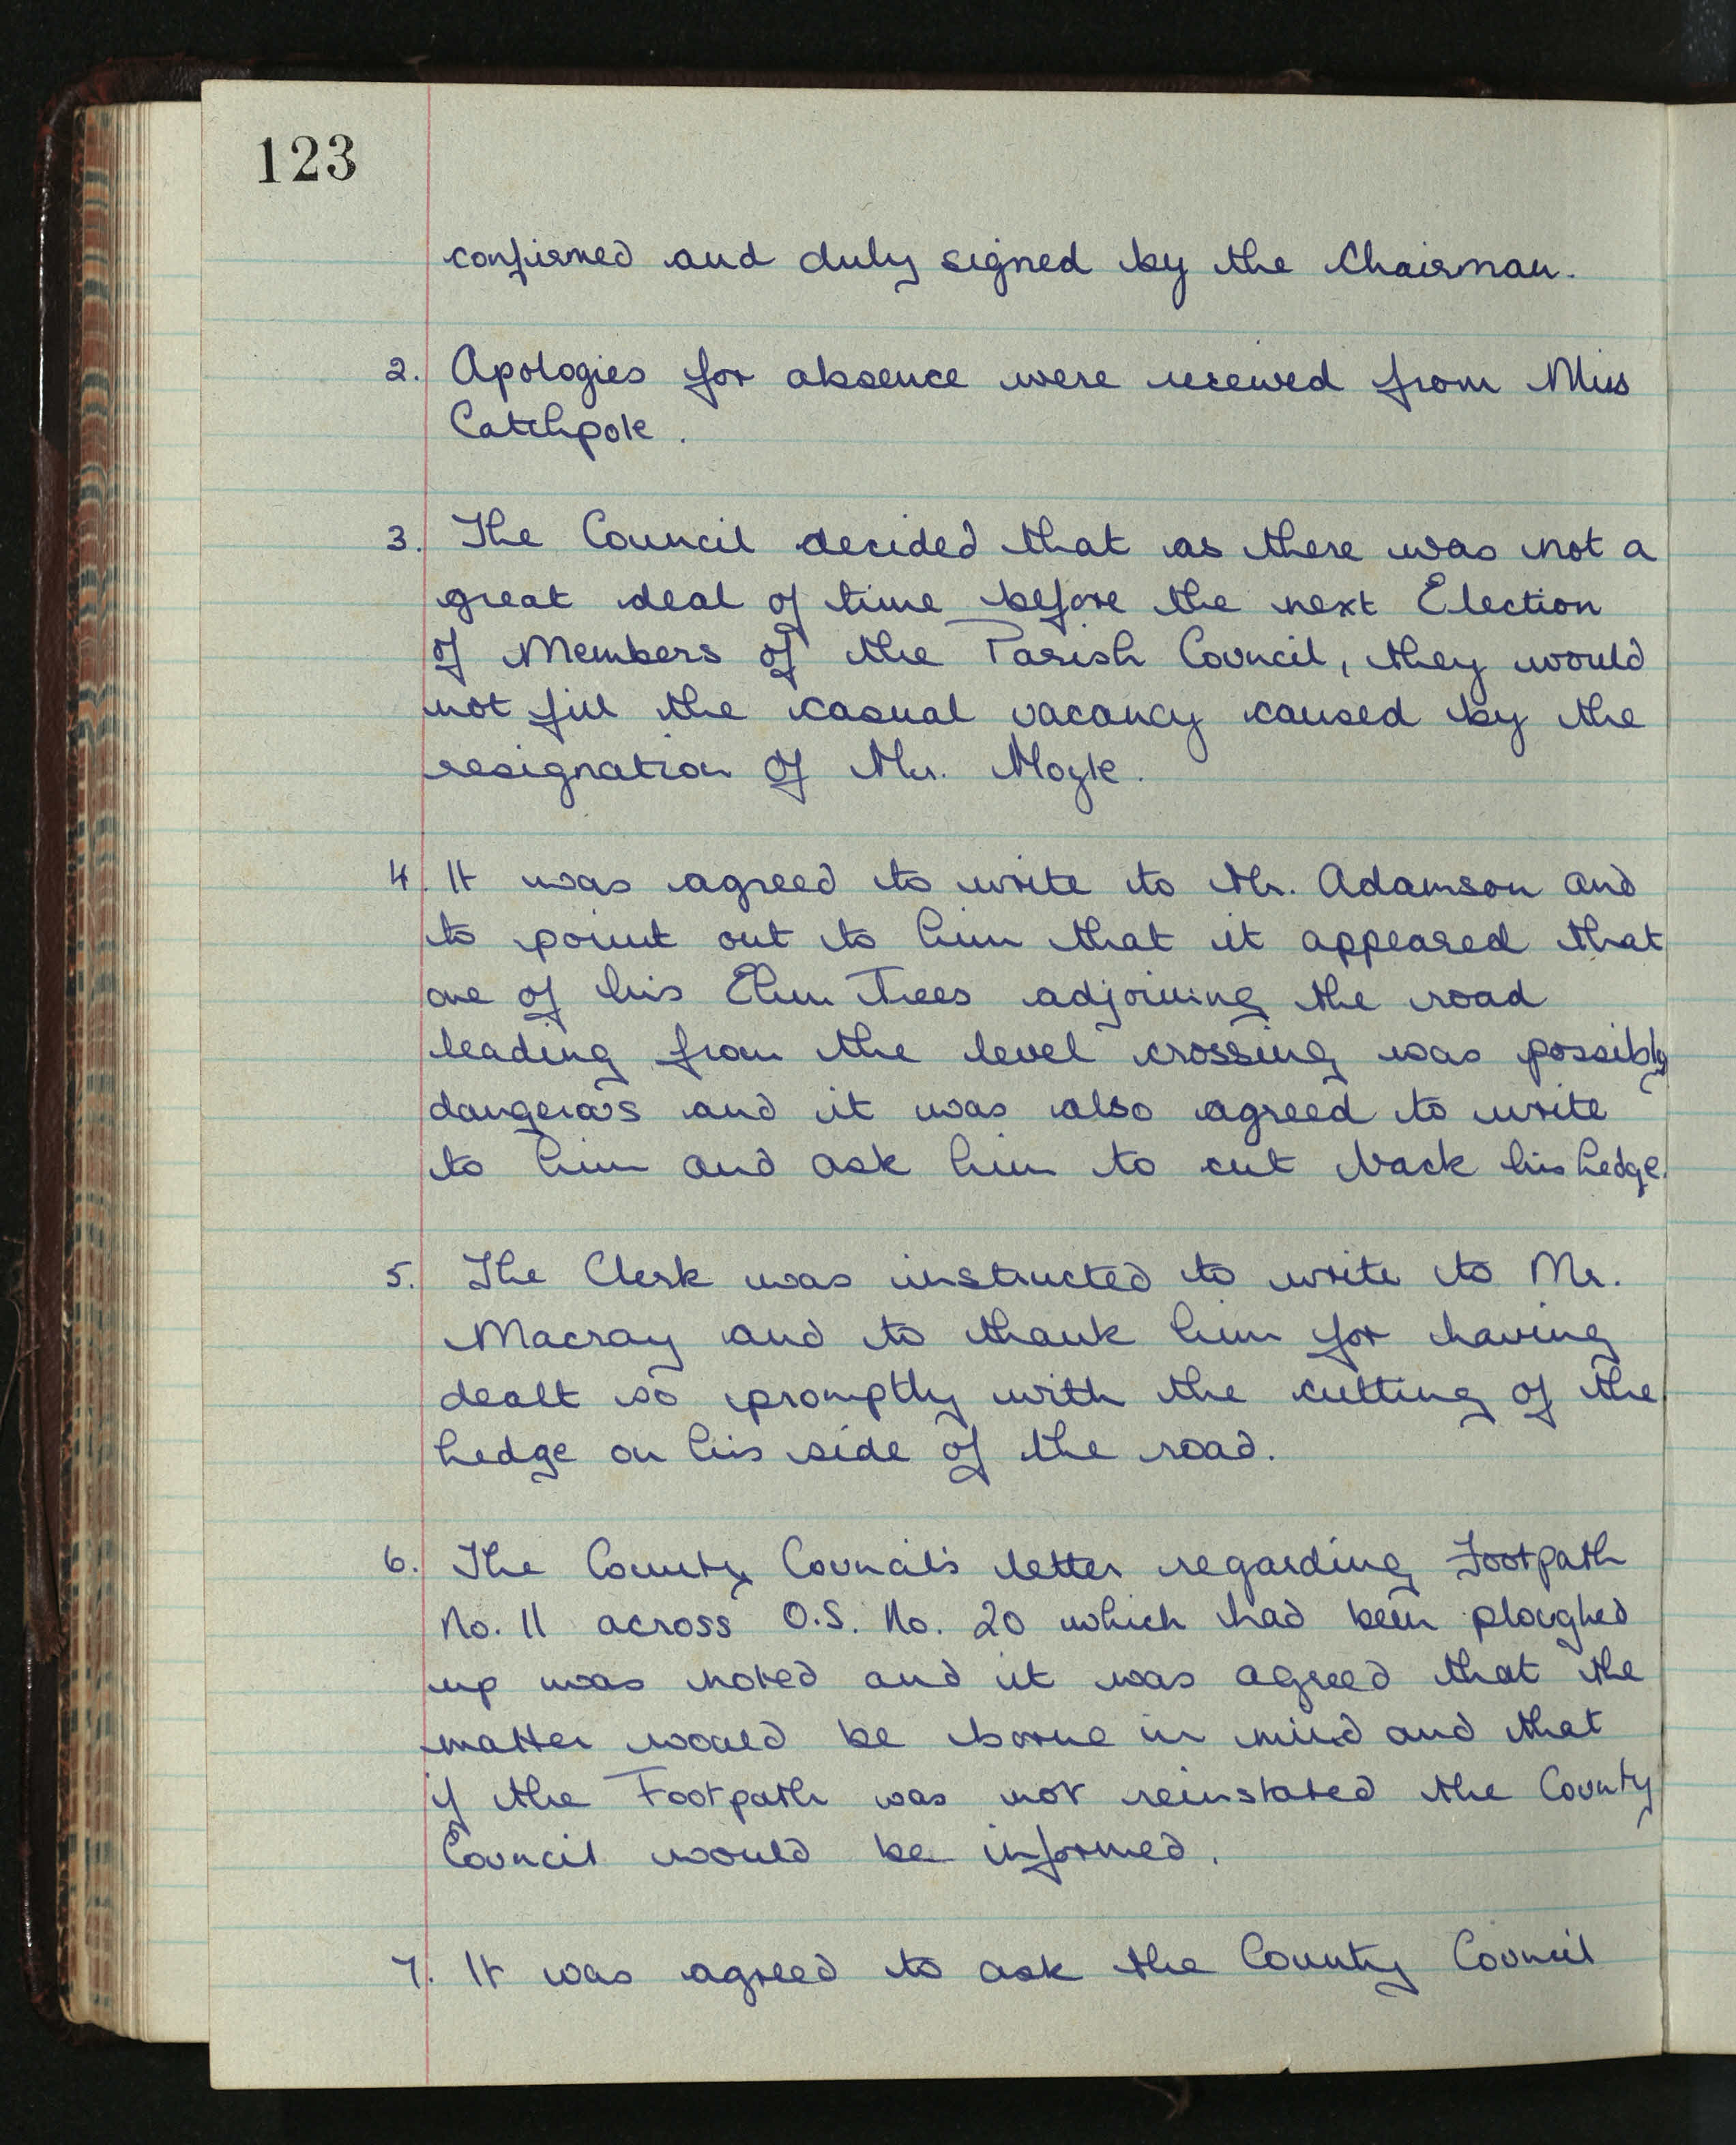 123
confirmed and duly signed by the Chairman.
2. Apologies for absence were received from Miss
Catchpole.
3. The Council decided that as there was not a
great deal of time before the next Election
of Members of the Parish Council, they would
not fill the casual vacancy caused by the
resignation of Mr. Moyle.
4. It was agreed to write to Mr. Adamson and
to point out to him that it appeared that
one of his Elm Trees adjoining the road
leading from the level crossing was possibly
dangerous and it was also agreed to write
to him and ask him to cut back his hedge.
5. The Clerk was instructed to write to Mr.
Macray and to thank him for having
dealt so promptly with the cutting of the
hedge on his side of the road.
6. The County Council's letter regarding Footpath
No. 11 across O.S. No. 20 which had been ploughed
up was noted and it was agreed that the
matter would be borne in mind and that
if the Footpath was not reinstated the County
Council would be informed.
7. It was agreed to ask the County Council